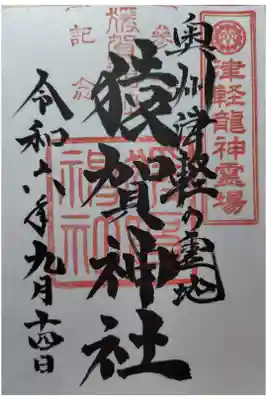 津軽龍神霊場
奥州津軽の霊地
参拝
猿賀
記念
猿賀神社
令和六年九月十四日